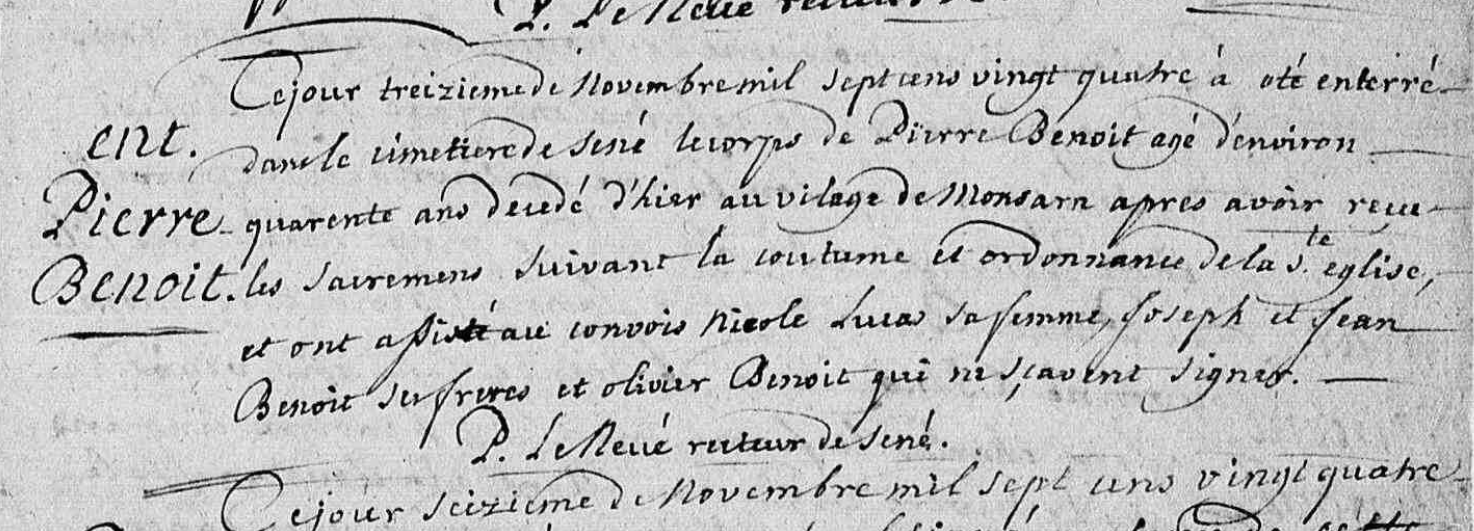 P. Le Neué recteur
Cejour treizieme de Novembre mil sept cens vingt quatre à oté enterré
ent.
dans le cimetiere de sené le corps de Pierre Benoit agé d'environ
Pierre quarente ans decedé d'hier au vilage de Monsarn apres avoir reçu
Benoit. les sacremens suivant la coutume et ordonnance de la Ste eglise,
et ont assisté au convois Nicole Lucas sa femme, Joseph et Jean
Benoit ses freres et olivier Benoit qui ne sçavent signer.
P. Le Neué recteur de sené.
Cejour seizieme de Novembre mil sept cens vingt quatre